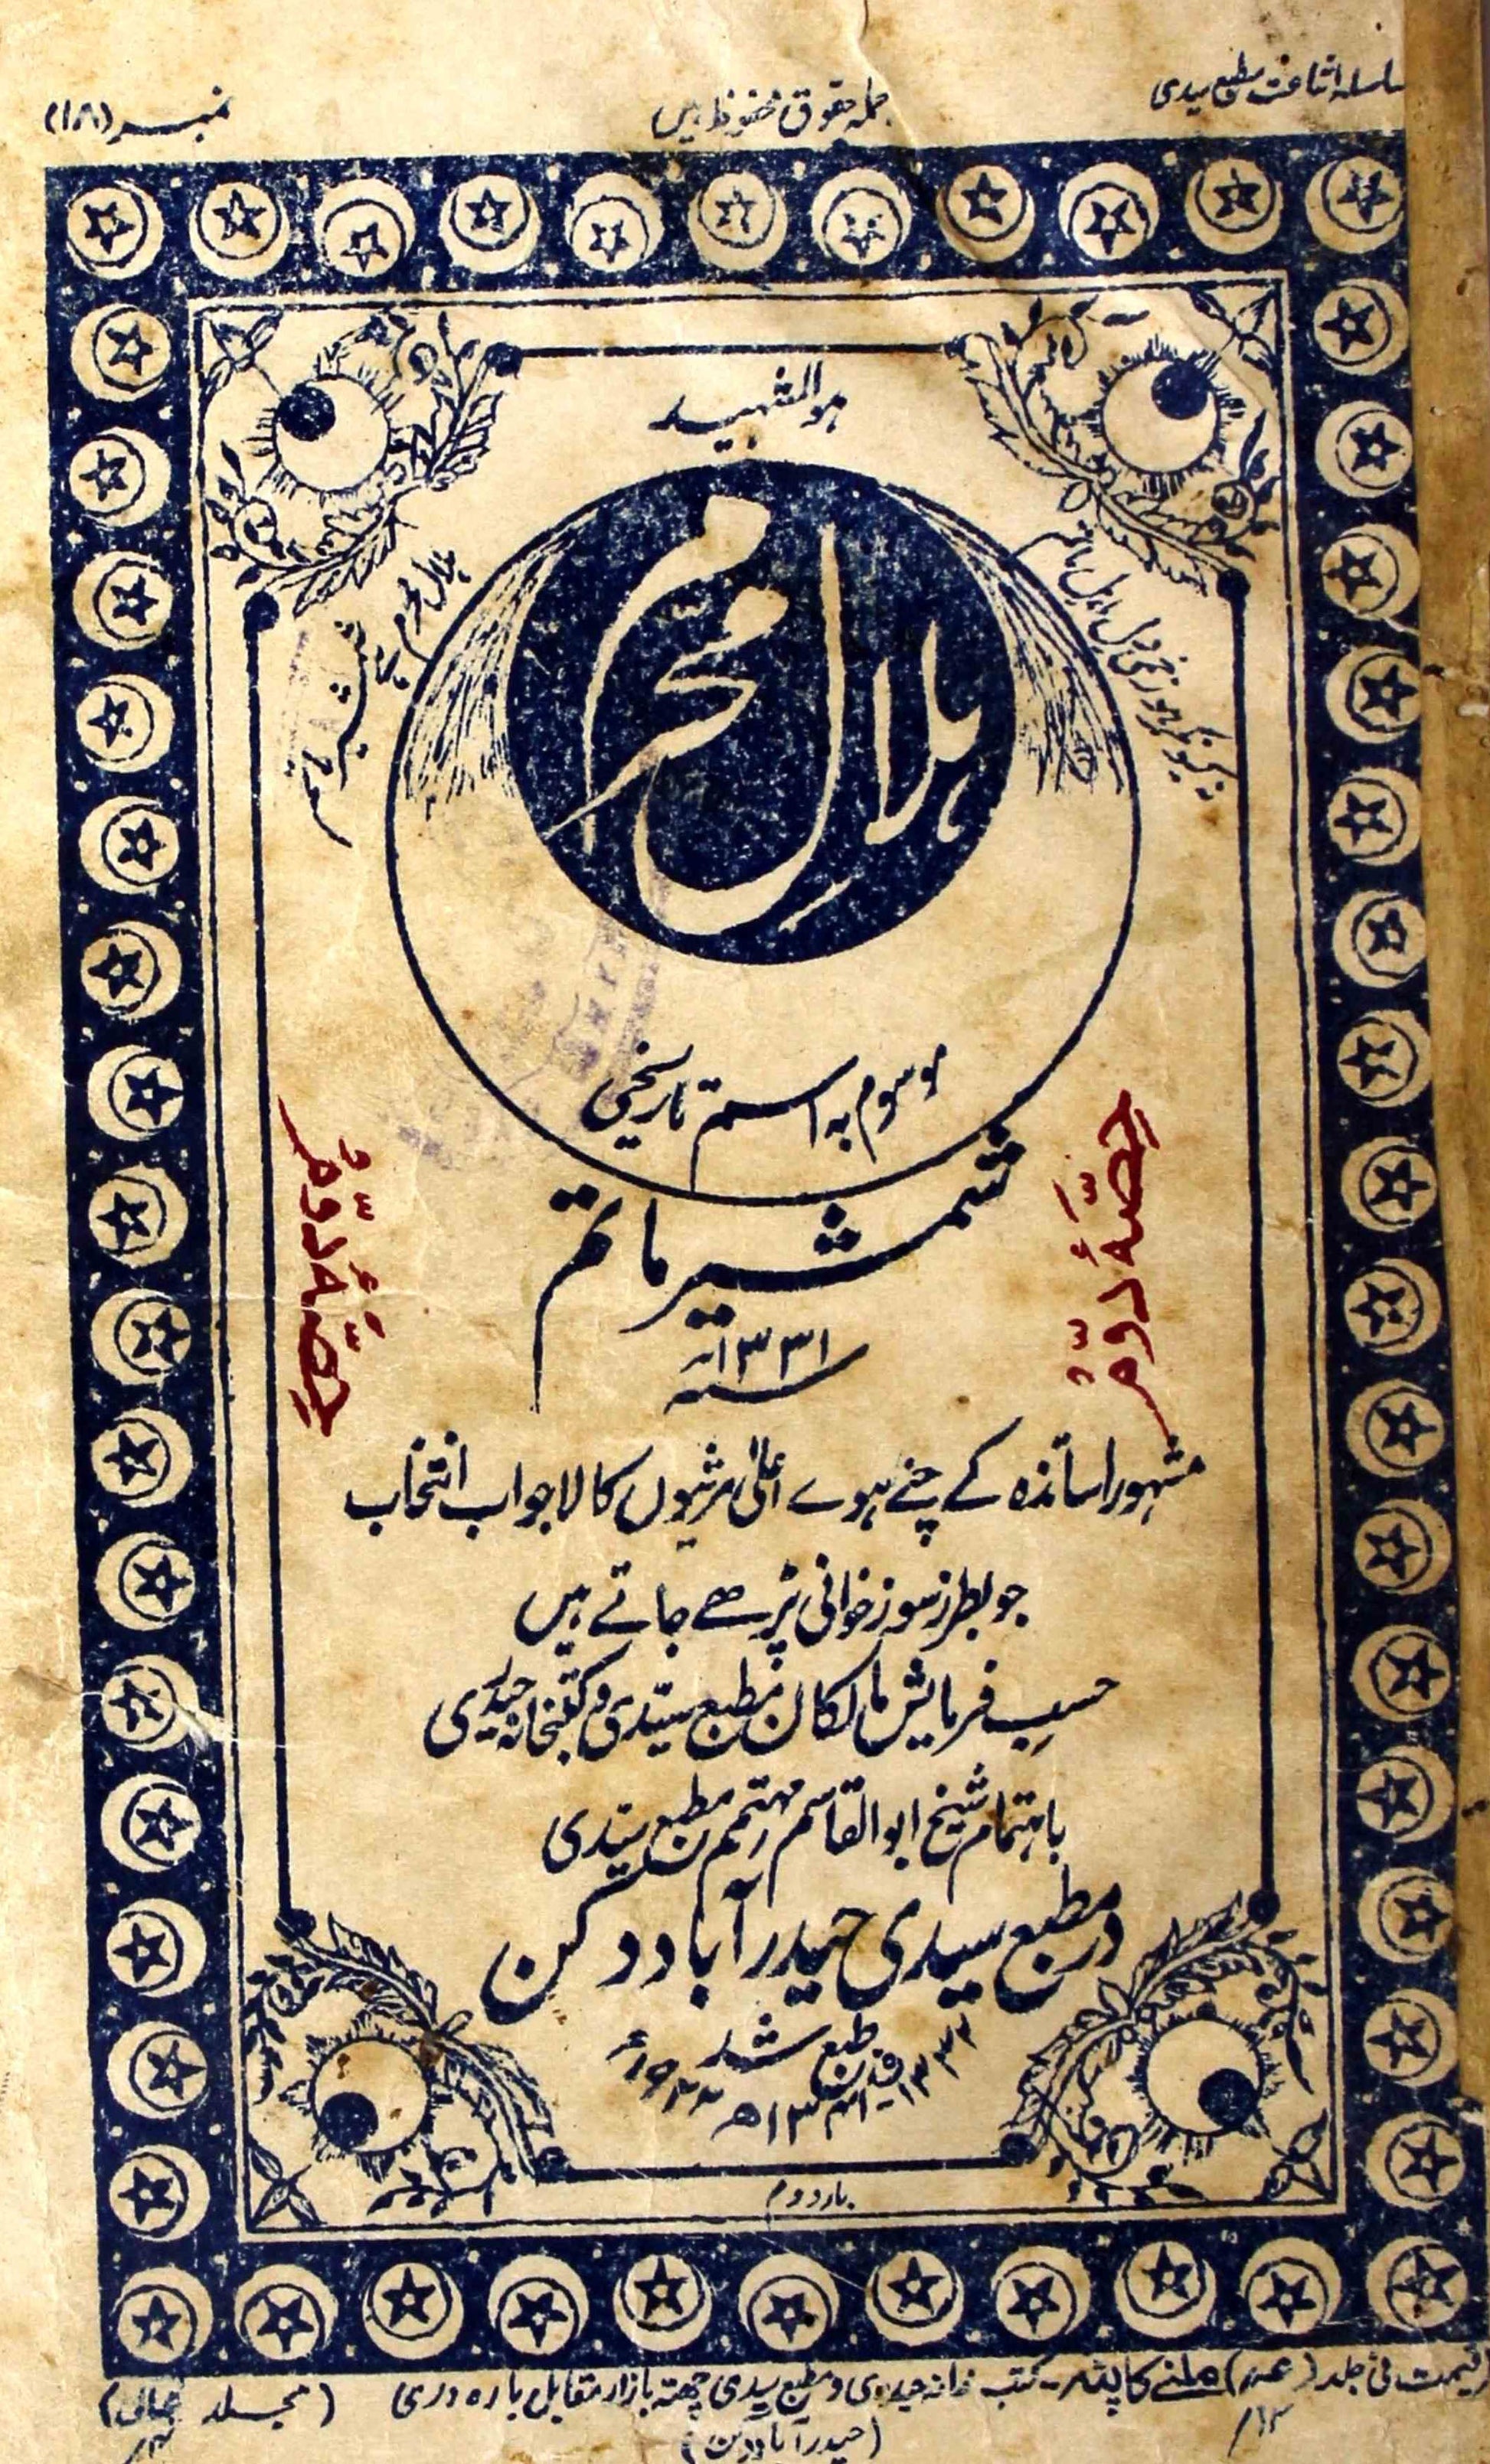 سلسلہ اشاعت مطبع سیدی
جملہ حقوق محفوظ ہیں
نمبر (۱۸)
ہوالشہید
کیونکر نہ ہو زخمی دل اہل ماتم
ہلال محرم ہے شمشیر ماتم
ہلال محرم
موسوم بہ اسم تاریخی
شمشیر ماتم
سنہ ۱۳۳۱
حِصّۂ دوّم
حِصّۂ دوّم
مشہور اساتذہ کے چنے ہوے اعلیٰ مرثیوں کا لاجواب انتخاب
جو بطرز سوزخوانی پڑھے جاتے ہیں
حسبِ فرمایش مالکان مطبع سیّدی و کتبخانہ حیدری
باہتمام شیخ ابوالقاسم مہتمم مطبع سیّدی
در مطبع سیدی حیدرآباد دکن
طبع شد
بار دوم
قیمت فی جلد ملنے کا پتہ۔ کتب خانہ حیدری و مطبع سیدی چھتہ بازار مقابل بارہ دری (مجلد
(حیدرآباد دکن)